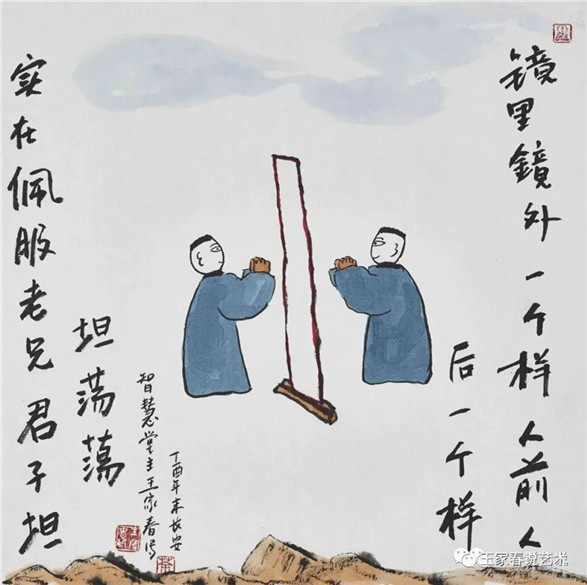 镜里镜外一个样人前人
后一个样
实在佩服老兄君子坦
坦荡荡
丁酉年末长安
智慧堂主王家春写
王家春说艺术